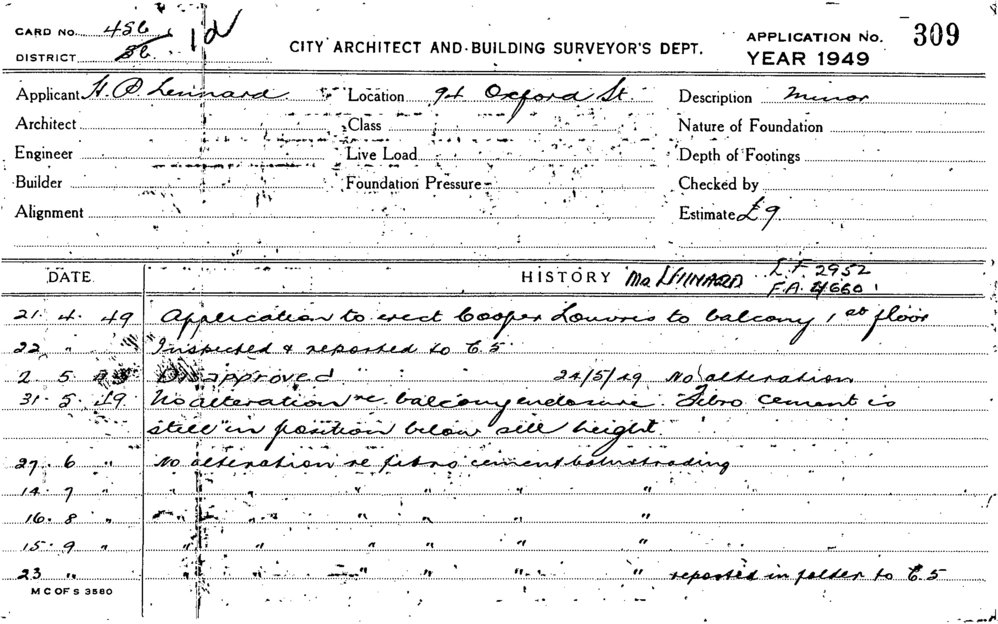 CARD No. 456
DISTRICT 86
CITY ARCHITECT AND BUILDING SURVEYOR'S DEPT.
APPLICATION No. 309
YEAR 1949
Applicant H. P. Lennard Location 94 Oxford St. Description Minor
Architect Class Nature of Foundation
Engineer Live Load Depth of Footings
Builder Foundation Pressure Checked by
Alignment Estimate £9
DATE HISTORY Mr LENNARD L.F. 2952
F.A. 4660
21 4 49 Application to erect Cooper Louvres to balcony 1st floor
22 " Inspected & reported to C.5
2 5 Disapproved 24/5/49 No alteration
31 5 49 No alteration re. balcony enclosure. Fibro cement is
still in position below sill height
27 6 " No alteration re fibro cement balustrading
14 7 " " " " " " "
16 8 " " " " " " "
15 9 " " " " " " "
23 " " " " " " " reported in folder to C.5
M C OF S 3580